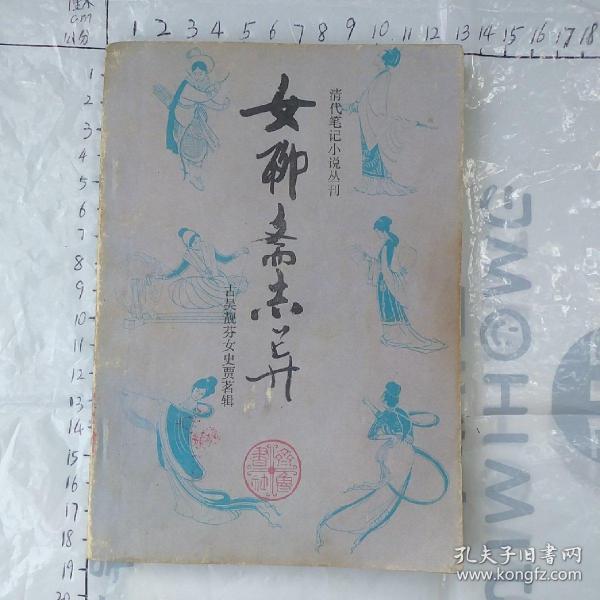 cm
公分
1 2 3 4 5 6 7 8 9 10 11 12 13 14 15 16 17 18
1
2
3
4
5
6
7
8
9
10
11
12
13
14
15
16
17
18
19
20
清代笔记小说丛刊
女聊斋志异
古吴靓芬女史贾茗辑
齐鲁书社
孔夫子旧书网
www.kongfz.com